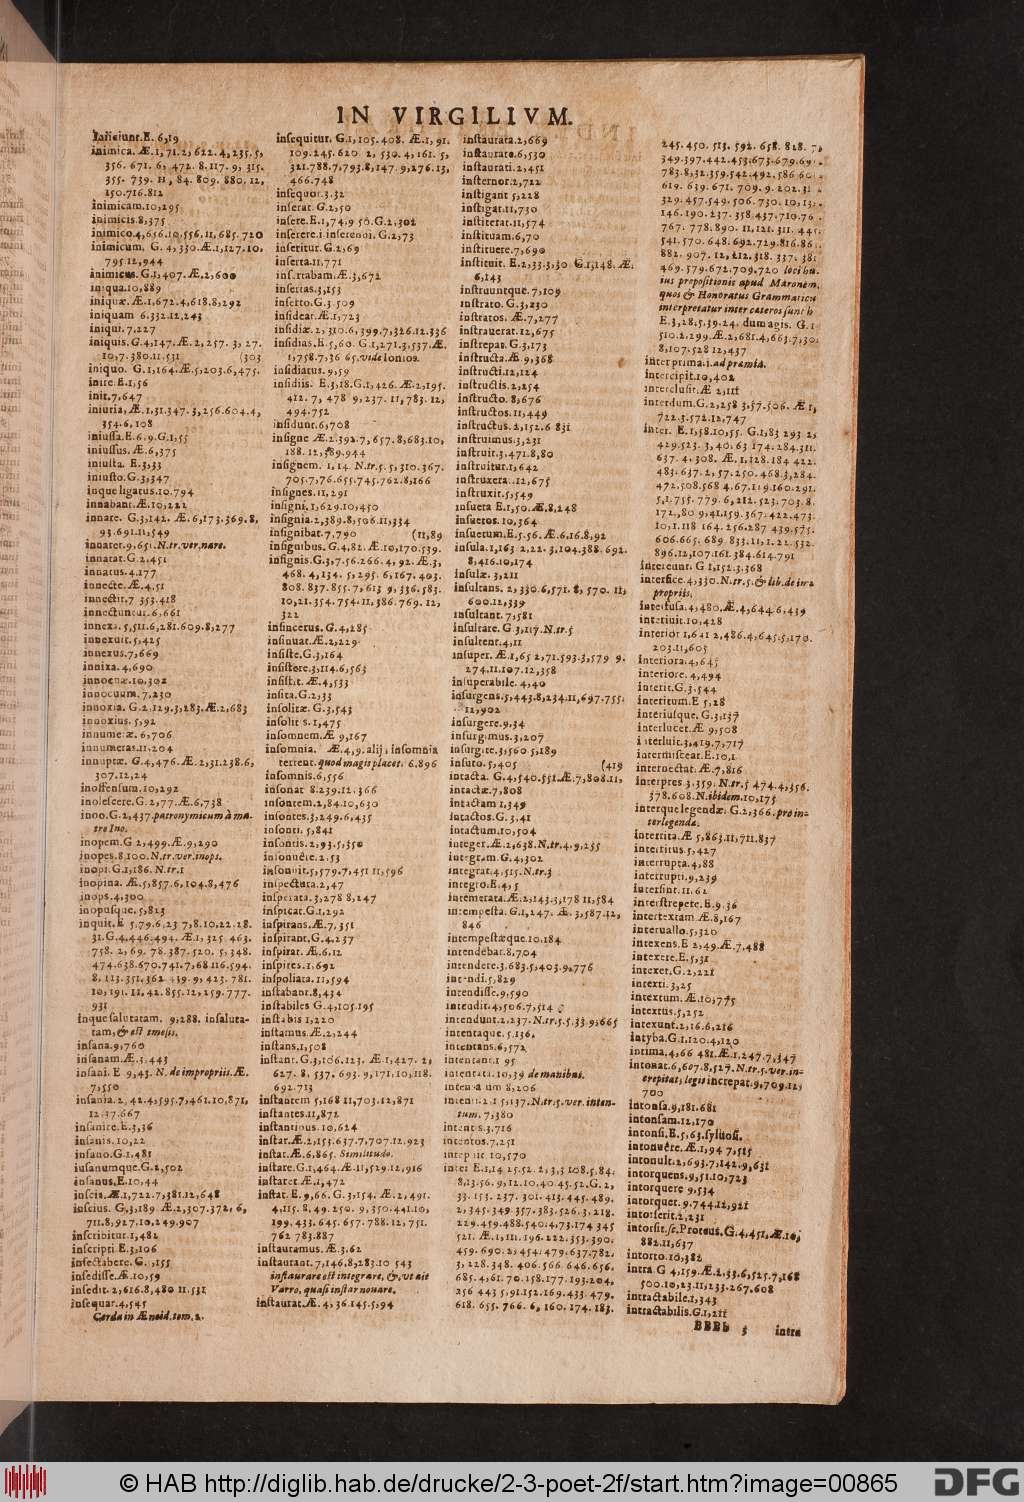 IN VIRGILIVM.
Iniiciunt.E. 6,19
inimica. Æ.1,71.2,622.4,235.5,
356. 671. 6, 472. 8.117. 9, 315.
355. 739. 11, 84. 809. 880. 12,
150.716.812
inimicam.10,295
inimicis.8,375
inimico.4,656.10,556.11,685. 720
inimicum. G. 4,330.Æ.1,127.10,
795.12,944
inimicus. G.1,407. Æ.2,600
iniqua.10,889
iniquæ. Æ.1,672.4,618.8,292
iniquam 6.332.12.243
iniqui. 7,227
iniquis.G.4,147.Æ.2,257. 3, 27.
10,7.380.11.531 (303
iniquo. G.1,164.Æ.5,203.6,475.
inire.E.1,56
init.7,647
iniuria,Æ.1,31.347.3,256.604.4,
354.6,108
iniussa.E.6.9.G.1,55
iniussus.Æ.6,375
iniusta. E.3,33
iniusto.G.3,347
inque ligatus.10.794
innabant.Æ.10,222
innare. G.3,142. Æ.6,173.369.8,
93.691.11,549
innaret.9,651.N.tr.ver.nare.
innatat.G.2,451
innatus.4.177
innecte.Æ.4,51
innectit.7 353.418
innectuntur.6,661
innexa.5,511.6,281.609.8,277
innexuit.5,425
innexus.7,669
innixa.4,690
innocuæ.10,302
innocuum.7,230
innoxia. G.2.129.3,283.Æ.2,683
innoxius.5,92
innumeræ.6,706
innumeras.11.204
innuptæ. G.4,476.Æ.2,31.238.6,
307.12,24
inoffensum.10,292
inolescere.G.2,77.Æ.6,738
inoo.G.2,437.patronymicum à ma-
tre Ino.
inopem.G 2,499.Æ.9,290
inopes.8,100.N.tr.ver.inops.
inopi.G.1,186. N.tr.1
inopina. Æ.5,857.6,104.8,476
inops.4,300
inopusque.5,813
inquit.E 5.79.6,23 7,8.10,22.28.
31.G.4,446.494. Æ.1,325 463.
758. 2, 69. 78.387. 520. 5, 348.
474.638.670.741.7,68 116.594.
8, 113.351.362 439.9,423. 781.
10, 191. 11, 42. 855. 12,259.777.
931
inque salutatam. 9,288. insaluta-
tam, & est tmesis.
insana.9,760
insanam.Æ.3.443
insani. E 9,43. N. de impropriis.Æ.
7,550
insania.2,42.4,595.7,461.10,871,
12.37.667
insanire.E.3,36
insanis.10,22
insano.G.1.481
insanumque.G.2,502
insanus.E.10,44
inscia. Æ.1,722.7,381.12,648
inscius. G,3,189 Æ.2,307.372, 6,
711.8,927.10,249.907
inscribitur.1,482
inscripti.E.3,106
insectabere. G. ,155
insedisse.Æ.10,59
insedit. 2,616.8,480 11.531
insequar.4,545
Cerda in Æneid.tom.2.
insequitur. G.1,105.408. Æ.1, 91.
109.245.620 2, 530. 4, 161. 5,
321.788.7,793.8,147.9,276.13,
466.748
insequor.3.32
inserat. G.2,50
insere.E.1,74.9 50.G.2,302
inserere.i inserendi. G.2,73
inseritur. G.2,69
inserta.11,771
insertabam.Æ.3,672
insertas.3,153
inserto.G.3 509
insideat.Æ.1,723
insidiæ.2,310.6,399.7,326.12.336
insidias.E.5,60. G.1,271.3,537.Æ.
1,758.7,36 65.vide lonios.
insidiatus.9,59
insidiis. E.3,18.G.1,426. Æ.2,195.
412. 7, 478 9,237. 11,783. 12,
494.752
insidunt.6,708
insigne Æ.2.392.7,657.8,683.10,
188. 12,289.944
insignem. 1, 14. N.tr.5. 5,310.367.
705.7,76.655.745.762.8,166
insignes.11,291
insigni.1,629.10,450
insignia.2,389.8,506.11,334
insignibat.7,790 (11,89
insignibus.G.4,82.Æ.10,170.539.
insignis.G.3,7.56.266.4, 92. Æ.3,
468. 4,134. 5, 295. 6,167. 403.
808. 837. 855. 7,613 9, 336.583.
10,21.354.754.11,386.769.12,
322
insincerus.G.4,285
insinuat.Æ.2,229
insiste.G.3,164
insistere.3,114.6,563
insistit. Æ.4,533
insita.G.2,33
insolitæ. G.3,543
insolitis.1,475
insomnem.Æ 9,167
insomnia. Æ.4,9. alij, insomnia
terrent. quod magis placet. 6.896
insomnis.6,556
insonat 8.239.12.366
insontem.2,84.10,630
insontes.3,249.6,435
insonti.5,841
insontis.2,93.5,350
insonuêre.2.53
insonuit.5,579.7,451 11,596
inspectura.2,47
insperata.3,278 8,247
inspicat.G.1,292
inspirans.Æ.7,351
inspirant.G.4,237
inspirat. Æ.6,12
inspires.1,692
inspoliata.11,594
instabant.8,434
instabiles G.4,105.195
instabis 1,220
instamus.Æ.2,244
instans.1,508
instant. G.3,106.123. Æ 1,427. 2,
627. 8, 537. 693. 9,171.10,118.
692.713
instantem 5,168 11,703.12,871
instantes.11,872
instantious.10,624
instar.Æ.2,153.637.7,707.12,923
instat. Æ.6,865. Similitudo.
instare.G.1,464.Æ 11,529.12,916
instaret Æ.1,472
instat. E. 9,66. G. 3,154. Æ. 2,491.
4,115. 8, 49. 250. 9, 350.441.10,
199, 433. 645. 657. 788. 12, 751.
762 783.887
instauramus.Æ.3,62
instaurant.7,146.8,283.10 543
instaurare est integrare, &, ut ait
Varro, quasi instar nouare.
instaurat.Æ. 4,36 145.5,94
instaurata.2,669
instaurate.6,530
instaurati.2,451
insternor.2,722
instigant 5,228
instigat.11,730
institerat.11,574
instituam.6,70
instituere.7,690
instituit. E.2,33.3,30 G.1,148. Æ.
6,143
instruuntque.7,109
instrato. G.3,230
instratos. Æ.7,277
instrauerat.12,675
instrepat. G.3,173
instructa.Æ 9,368
instructi.12,124
instructis.2,254
instructo. 8,676
instructos.11,449
instructus.2,152.6 831
instruimus.3,231
instruit.3,471.8,80
instruitur.1,642
instruxera..12,675
instruxit.5,549
insueta E.1,50. Æ.8,248
insuetos.10,364
insuetum.E.5.56.Æ.6.16.8,92
insula.1,163 2,22.3,104.388.692.
8,416.10,174
insulæ.3,211
insultans. 2, 330.6,571. 8, 570. 11,
600.12,339
insultant. 7,581
insultare. G.3,117.N.tr.5
insultent.4,11
insuper.Æ.1,65 2,71.593.3,579 9.
274.11.107.12,358
insuperabile.4,40
insurgens.5,443.8,234.11,697.755.
12,902
insurgere.9,34
insurgimus.3,207
insurgite.3,560 5,189
insuto.5,405 (419
intacta. G.4,540.551.Æ.7,808.11,
intactæ.7,808
intactam 1,349
intactos.G.3,41
intactum.10,504
integer.Æ.2,638.N.tr.4.9,255
integram.G.4,302
integrat.4,515.N.tr.3
integro.E.4,5
intemerata.Æ.2,143.3,178 11,584
intempesta. G.1,247. Æ. 3,587.12,
846
intempestæque.10,184
intendebat.8,704
intendere.3.683.5,403.9,776
intendi.5,829
intendisse.9,590
intendit.4,506.7,514
intendunt.2,237.N.tr.5.5.33 9,665
intentaque.5.136.
intentans.6,572
intentant.1 95
intentata.10,39 de manibus.
8,206
intenti.2 1 5,137.N.tr.5.ver.inten-
tum.7,380
intentis.3.716
intentos.7,251
intepuit 10,570
inter E.1,14 25.52. 2,3,3 108.5,84.
8,13.56. 9, 12. 10,40.45.52.G.2,
33. 155. 237. 301. 413. 445. 489.
2,345.349.357.383.526.3,218.
229.459.488.540.4,73.174 345
521. Æ.1,111.196.222.353.390.
459. 690. 2, 454. 479.637.782.
3, 228. 348. 406. 566. 646.656.
685.4,61.70.158.177.193.204,
256 443 5,91.152.169.433.479.
618. 655. 766. 6, 160. 174. 183.
245.450. 513. 592. 658. 828. 7,
349.397.442.453.673.679.69
783.8,32.359.542.492.586 60
619. 639.671. 709.9.202.31
329.457.549.506.730.10,13
146.190.237.358 437.710.76
767. 778.890. 11,121.311.445
541.570. 648.692.729.816.86
882. 907. 12, 212.318. 337. 381
469.579.672.709.720 loci hu-
ius propositionis apud Maronem,
quos & Honoratus Grammaticus
interpretatur inter cæteros sunt h
E.3,28.5.39.24. dumagis. G.1
510.2,299.Æ.2,681.4,663.7,30
8,107.528 12,437
inter prima.i.ad præmia.
intercipit.10,402
interclusit. Æ 2,111
interdum.G.2,258 3,57.506. Æ.1,
722.3.572.12,747
inter. E.1,38.10,55. G.1,83 293 2,
429.523. 3,40.63 174.284.311.
637. 4, 308. Æ.1,128.184 422.
483.637.2,57.250.468.3,284.
472.508.568 4.67.119.160.291.
5,1.755.779.6,212.523.703.8.
172,,80 9,41.159.367.422.473.
10,1.118 164. 256.287 439.575.
606.665. 689. 833.11,1.22.532.
896.12,107.161.384.614.791
intereunt. G 1,152.3.368
interfice.4,330.N.tr.5.& lib.de ira
propriis.
interfusa.4,480.Æ.4,644 6,439
interiuit.10,428
interior 1,641 2,486.4,645.5,170.
203.11,603
interiora.4,645
interiore. 4,494
interit.G.3.544
interitum.E 5,28
interiusque. G.3,137
interlucet.Æ 9,508
interluit.3,419.7,717
intermisceat.E.10,1
internectat.Æ.7,816
interpres.3.359. N.tr.5 474.4,356.
378.608.N.ibidem.10,175
interque legendæ. G.2,366.pro in-
terlegenda.
interrita.Æ 5,863.11,711.837
interritus.5,427
interrupta.4,88
interrupti.9,239
intersint.11.62
interstrepere.E.9.36
intertextam Æ.8,167
interuallo.5,320
intexens.E 2,49.Æ.7,488
intexere.E.5,31
intexet.G.2,221
intexti.3,25
intextum.Æ.10,785
intextus.5,252
intexunt.2,16.6,216
intyba.G.1.120.4,120
intima.4,66 481.Æ.1,247.7,347
intonat.6,607.8,527.N.tr.5.ver.in-
crepitat; legis increpat.9,709.12,
700
intonsa.9,181.681
intonsam.12,170
intonsi.E.5,63.sylvosi.
intonuêre.Æ.1,94 7,515
intonuit.2,693.7,142.9,631
intorquens.9,51.10,723
intorquere 9,534
intorquet.9,744.12,921
intorserit.2,231
intorsit.sc.Proteus.G.4,451,Æ.10,
882.11,637
intorto.10,382
intra G 4,159.Æ.2,33.6,525.7,168
500.10,23.11,233.267.608
intractabile.1,343
intractabilis.G.1,211
BBBb 3 intra
© HAB http://diglib.hab.de/drucke/2-3-poet-2f/start.htm?image=00865
DFG